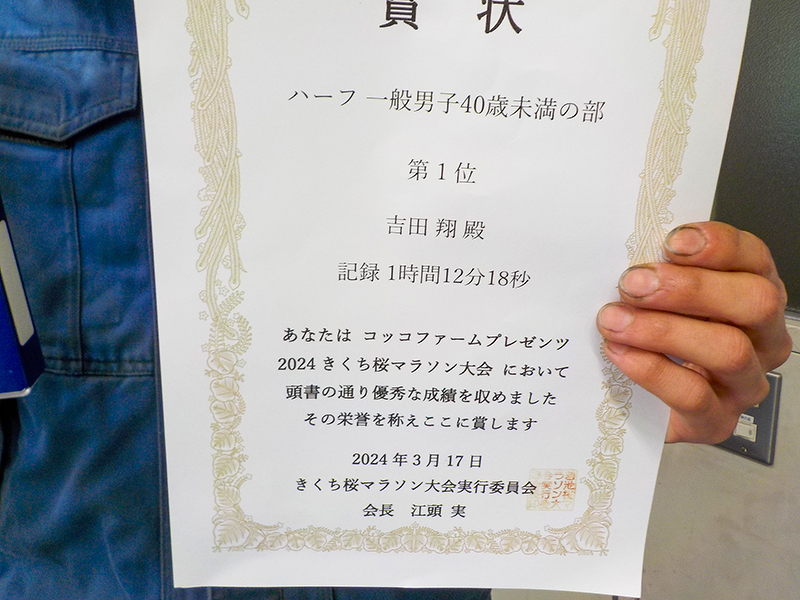 賞状
ハーフ 一般男子40歳未満の部
第1位
吉田 翔 殿
記録 1時間12分18秒
あなたは コッコファームプレゼンツ
2024 きくち桜マラソン大会 において
頭書の通り優秀な成績を収めました
その栄誉を称えここに賞します
2024年3月17日
きくち桜マラソン大会実行委員会
会長 江頭 実